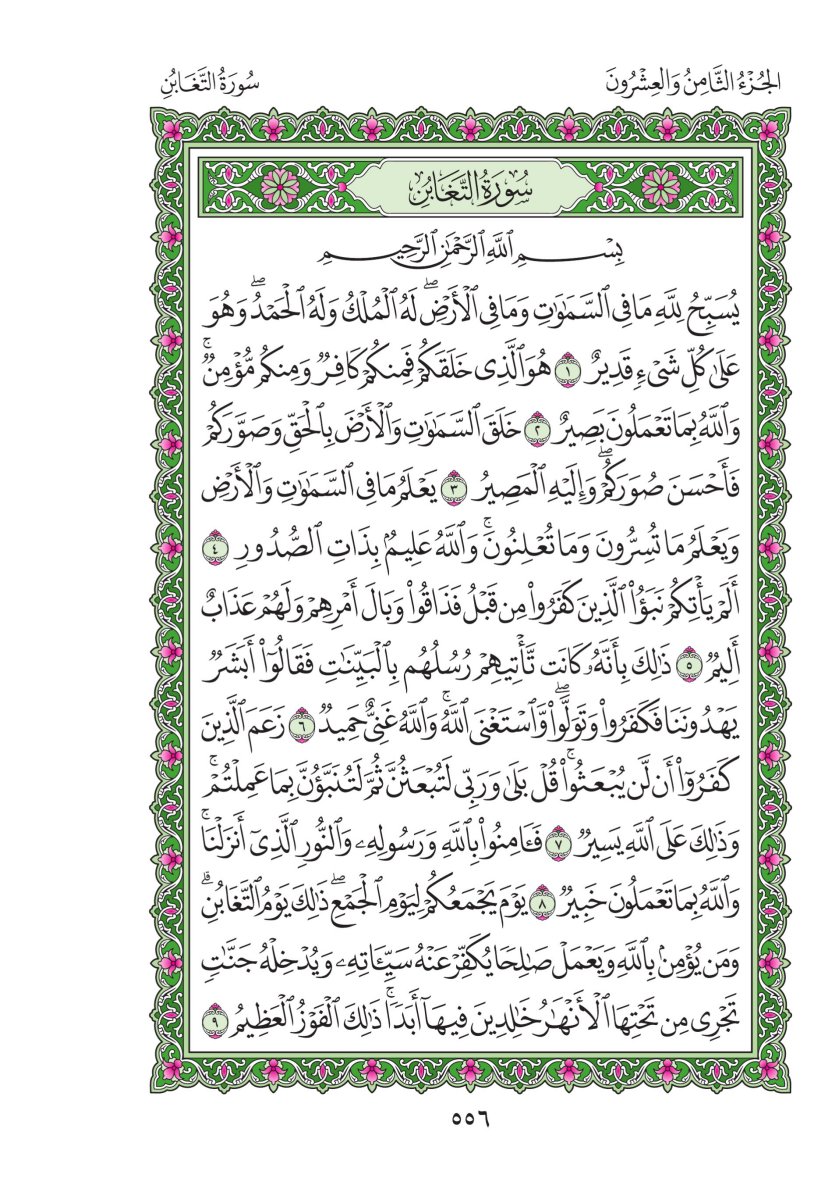 الجُزْءُ الثَّامِنُ وَالعِشْرُونَ
سُورَةُ التَّغَابُنِ
سُورَةُ التَّغَابُنِ
بِسْمِ ٱللَّهِ ٱلرَّحْمَٰنِ ٱلرَّحِيمِ
يُسَبِّحُ لِلَّهِ مَا فِي ٱلسَّمَٰوَٰتِ وَمَا فِي ٱلْأَرْضِۖ لَهُ ٱلْمُلْكُ وَلَهُ ٱلْحَمْدُۖ وَهُوَ
عَلَىٰ كُلِّ شَيْءٖ قَدِيرٌ ١ هُوَ ٱلَّذِي خَلَقَكُمْ فَمِنكُمْ كَافِرٞ وَمِنكُم مُّؤْمِنٞۚ
وَٱللَّهُ بِمَا تَعْمَلُونَ بَصِيرٌ ٢ خَلَقَ ٱلسَّمَٰوَٰتِ وَٱلْأَرْضَ بِٱلْحَقِّ وَصَوَّرَكُمْ
فَأَحْسَنَ صُوَرَكُمْۖ وَإِلَيْهِ ٱلْمَصِيرُ ٣ يَعْلَمُ مَا فِي ٱلسَّمَٰوَٰتِ وَٱلْأَرْضِ
وَيَعْلَمُ مَا تُسِرُّونَ وَمَا تُعْلِنُونَۚ وَٱللَّهُ عَلِيمُۢ بِذَاتِ ٱلصُّدُورِ ٤
أَلَمْ يَأْتِكُمْ نَبَؤُاْ ٱلَّذِينَ كَفَرُواْ مِن قَبْلُ فَذَاقُواْ وَبَالَ أَمْرِهِمْ وَلَهُمْ عَذَابٌ
أَلِيمٞ ٥ ذَٰلِكَ بِأَنَّهُۥ كَانَت تَّأْتِيهِمْ رُسُلُهُم بِٱلْبَيِّنَٰتِ فَقَالُوٓاْ أَبَشَرٞ
يَهْدُونَنَا فَكَفَرُواْ وَتَوَلَّواْۖ وَّٱسْتَغْنَى ٱللَّهُۚ وَٱللَّهُ غَنِيٌّ حَمِيدٞ ٦ زَعَمَ ٱلَّذِينَ
كَفَرُوٓاْ أَن لَّن يُبْعَثُواْۚ قُلْ بَلَىٰ وَرَبِّي لَتُبْعَثُنَّ ثُمَّ لَتُنَبَّؤُنَّ بِمَا عَمِلْتُمْۚ
وَذَٰلِكَ عَلَى ٱللَّهِ يَسِيرٞ ٧ فَـَٔامِنُواْ بِٱللَّهِ وَرَسُولِهِۦ وَٱلنُّورِ ٱلَّذِيٓ أَنزَلْنَاۚ
وَٱللَّهُ بِمَا تَعْمَلُونَ خَبِيرٞ ٨ يَوْمَ يَجْمَعُكُمْ لِيَوْمِ ٱلْجَمْعِۖ ذَٰلِكَ يَوْمُ ٱلتَّغَابُنِۗ
وَمَن يُؤْمِنۢ بِٱللَّهِ وَيَعْمَلْ صَٰلِحٗا يُكَفِّرْ عَنْهُ سَيِّـَٔاتِهِۦ وَيُدْخِلْهُ جَنَّٰتٖ
تَجْرِي مِن تَحْتِهَا ٱلْأَنْهَٰرُ خَٰلِدِينَ فِيهَآ أَبَدٗاۚ ذَٰلِكَ ٱلْفَوْزُ ٱلْعَظِيمُ ٩
٥٥٦